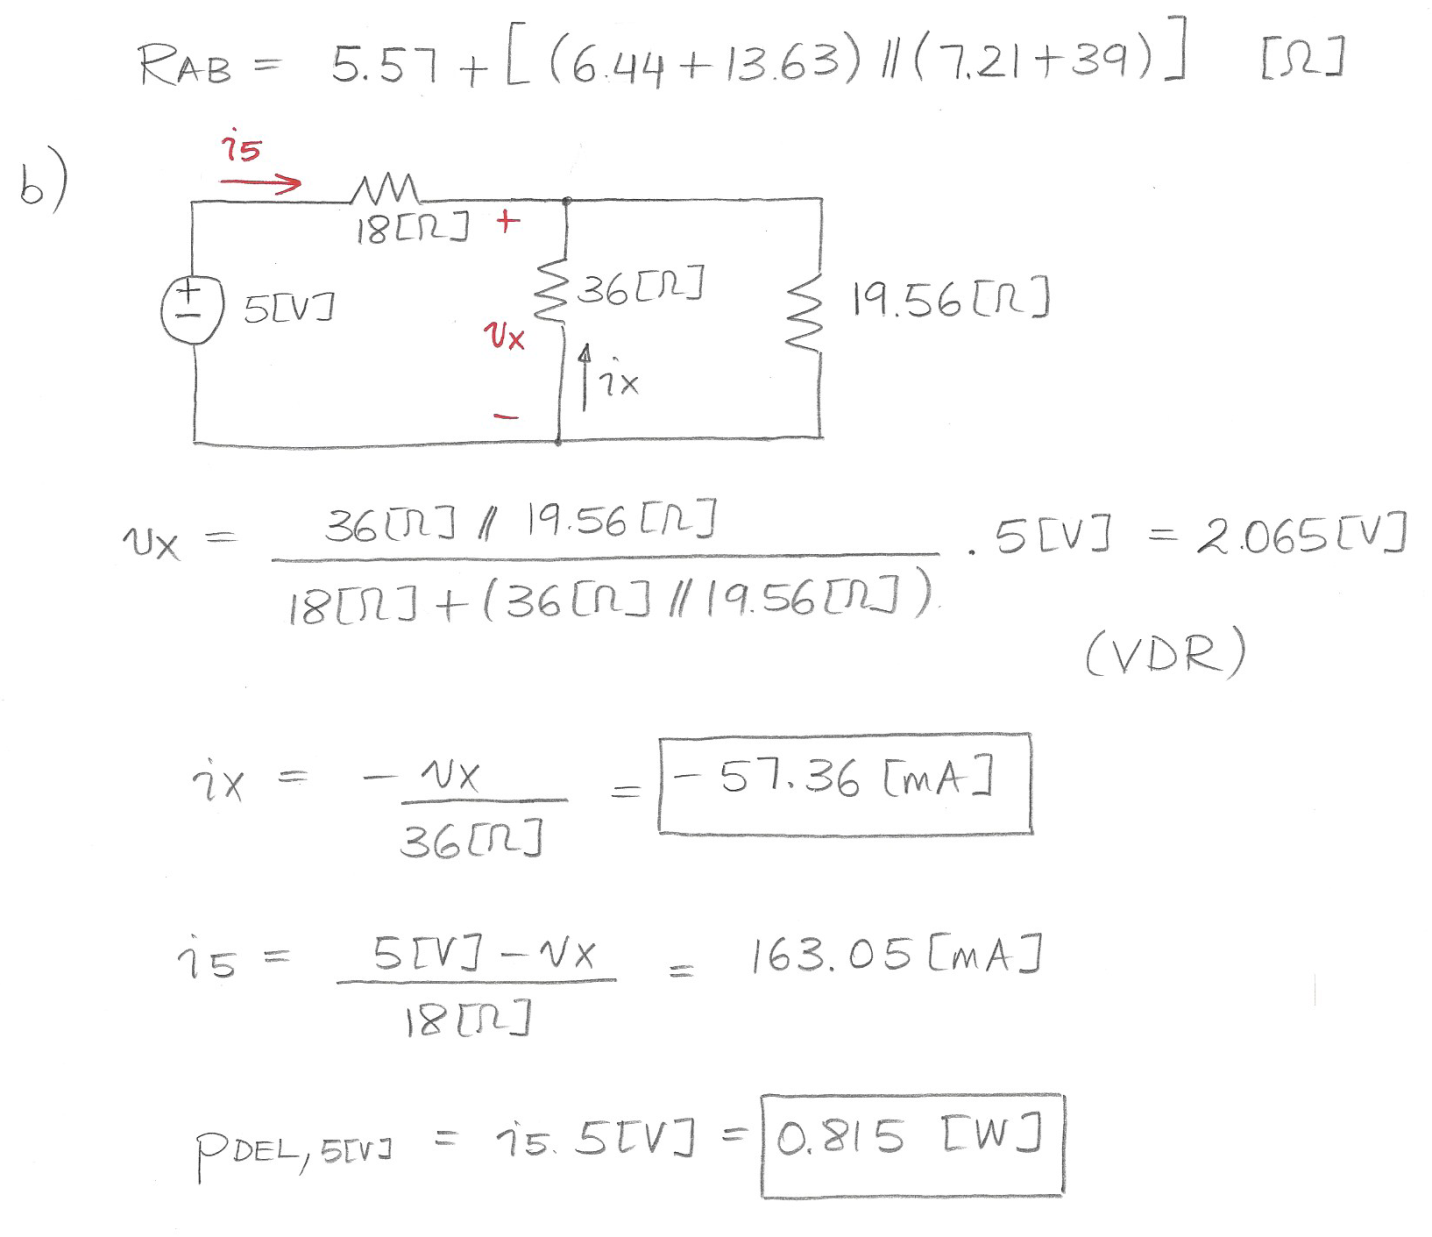 RAB = 5.57 + [ (6.44 + 13.63) // (7.21 + 39) ] [Ω]
b)
i5
18[Ω] +
36[Ω]
19.56[Ω]
+
-
5[V]
vx
ix
-
vx = 36[Ω] // 19.56[Ω] / 18[Ω] + (36[Ω] // 19.56[Ω]) . 5[V] = 2.065[V]
(VDR)
ix = - vx / 36[Ω] = -57.36 [mA]
i5 = 5[V] - vx / 18[Ω] = 163.05 [mA]
PDEL, 5[V] = i5. 5[V] = 0.815 [W]